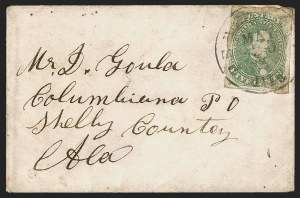 Mr. D. Goula
Columbiana P O
Shelly Country
Ala